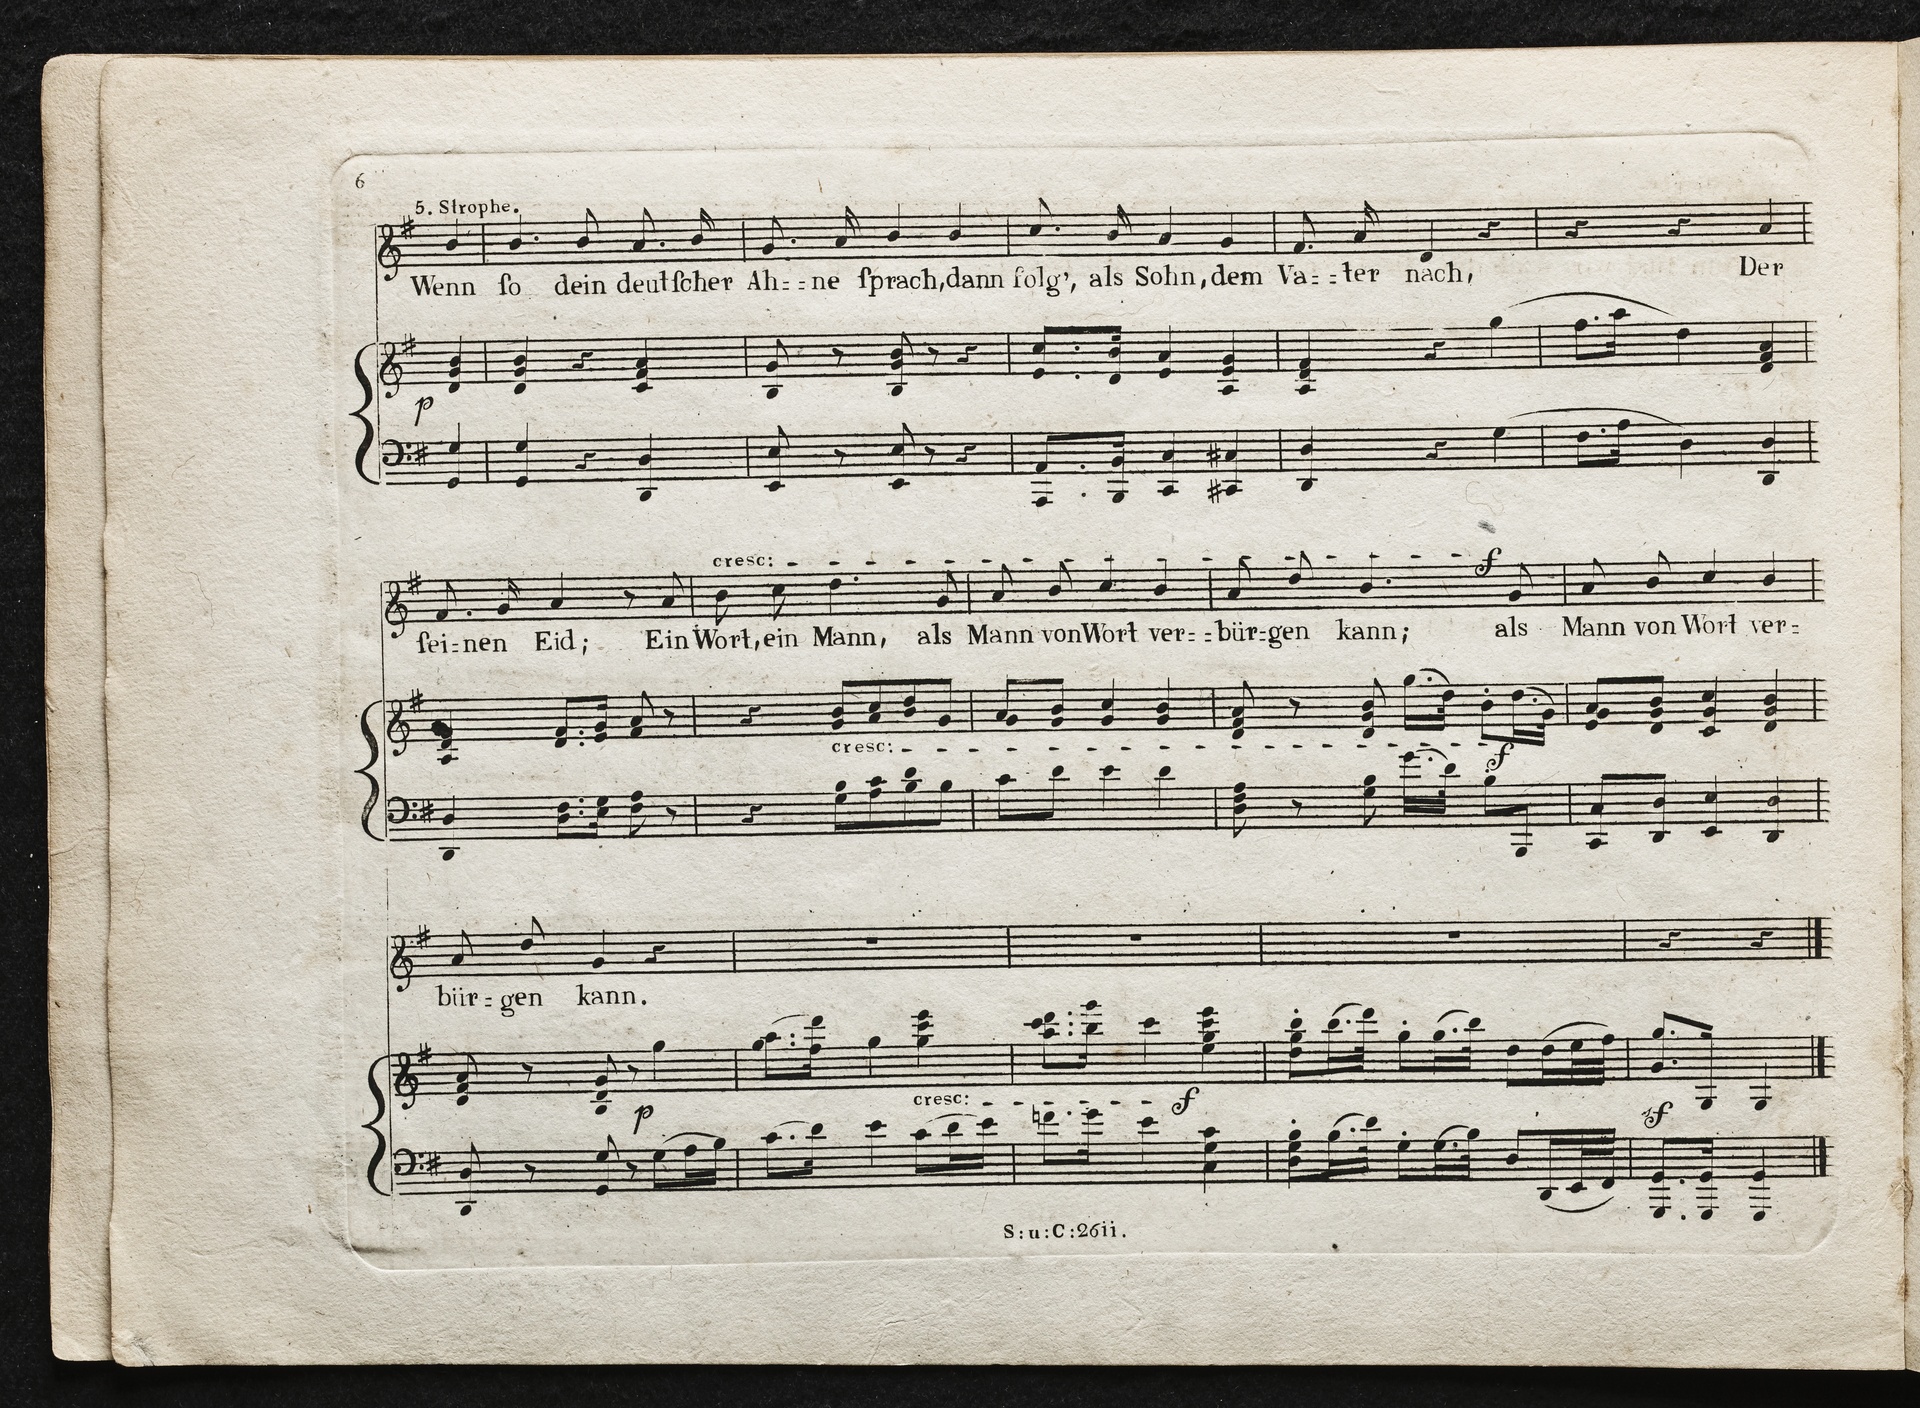 6
5. Strophe.
Wenn ſo dein deutſcher Ah==ne ſprach, dann folg', als Sohn, dem Va==ter nach, Der
p
cresc: f
ſei=nen Eid; Ein Wort, ein Mann, als Mann von Wort ver==bür=gen kann; als Mann von Wort ver=
cresc: f
bür=gen kann.
p cresc: f sf
S:u:C:2611.